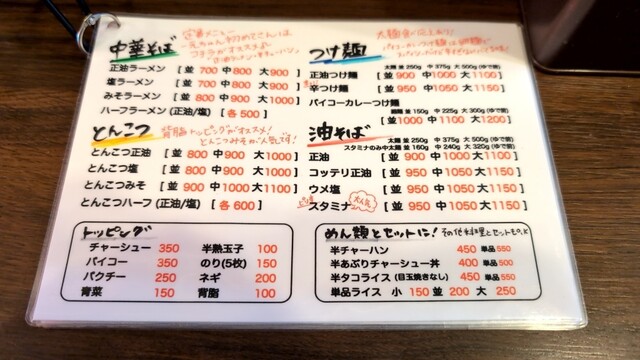 中華そば
正油ラーメン [ 並 700 中 800 大 900 ]
塩ラーメン [ 並 700 中 800 大 900 ]
みそラーメン [ 並 800 中 900 大 1000 ]
ハーフラーメン (正油/塩) [ 各 500 ]
とんこつ
背脂トッピングがオススメ!
とんこつみそが人気です!
とんこつ正油 [ 並 800 中 900 大 1000 ]
とんこつ塩 [ 並 800 中 900 大 1000 ]
とんこつみそ [ 並 900 中 1000 大 1100 ]
とんこつハーフ (正油/塩) [ 各 600 ]
トッピング
チャーシュー 350 半熟玉子 100
パイコー 350 のり(5枚) 150
パクチー 250 ネギ 200
青菜 150 背脂 100
つけ麺
太麺 並 250g 中 375g 大 500g (ゆで前)
正油つけ麺 [ 並 900 中 1000 大 1100 ]
辛つけ麺 [ 並 950 中 1050 大 1150 ]
パイコーカレーつけ麺
並 150g 中 225g 大 300g (ゆで前)
[ 並 1000 中 1100 大 1200 ]
油そば
太麺 並 250g 中 375g 大 500g (ゆで前)
スタミナのみ中太麺 並 160g 中 240g 大 320g (ゆで前)
正油 [ 並 900 中 1000 大 1100 ]
コッテリ正油 [ 並 950 中 1050 大 1150 ]
ウメ塩 [ 並 950 中 1050 大 1150 ]
スタミナ 大人気 [ 並 950 中 1050 大 1150 ]
めん類とセットに! その他料理とセットもO.K
半チャーハン 450 単品 550
半あぶりチャーシュー丼 400 単品 500
半タコライス (目玉焼きなし) 450 単品 550
単品ライス 小 150 並 200 大 250